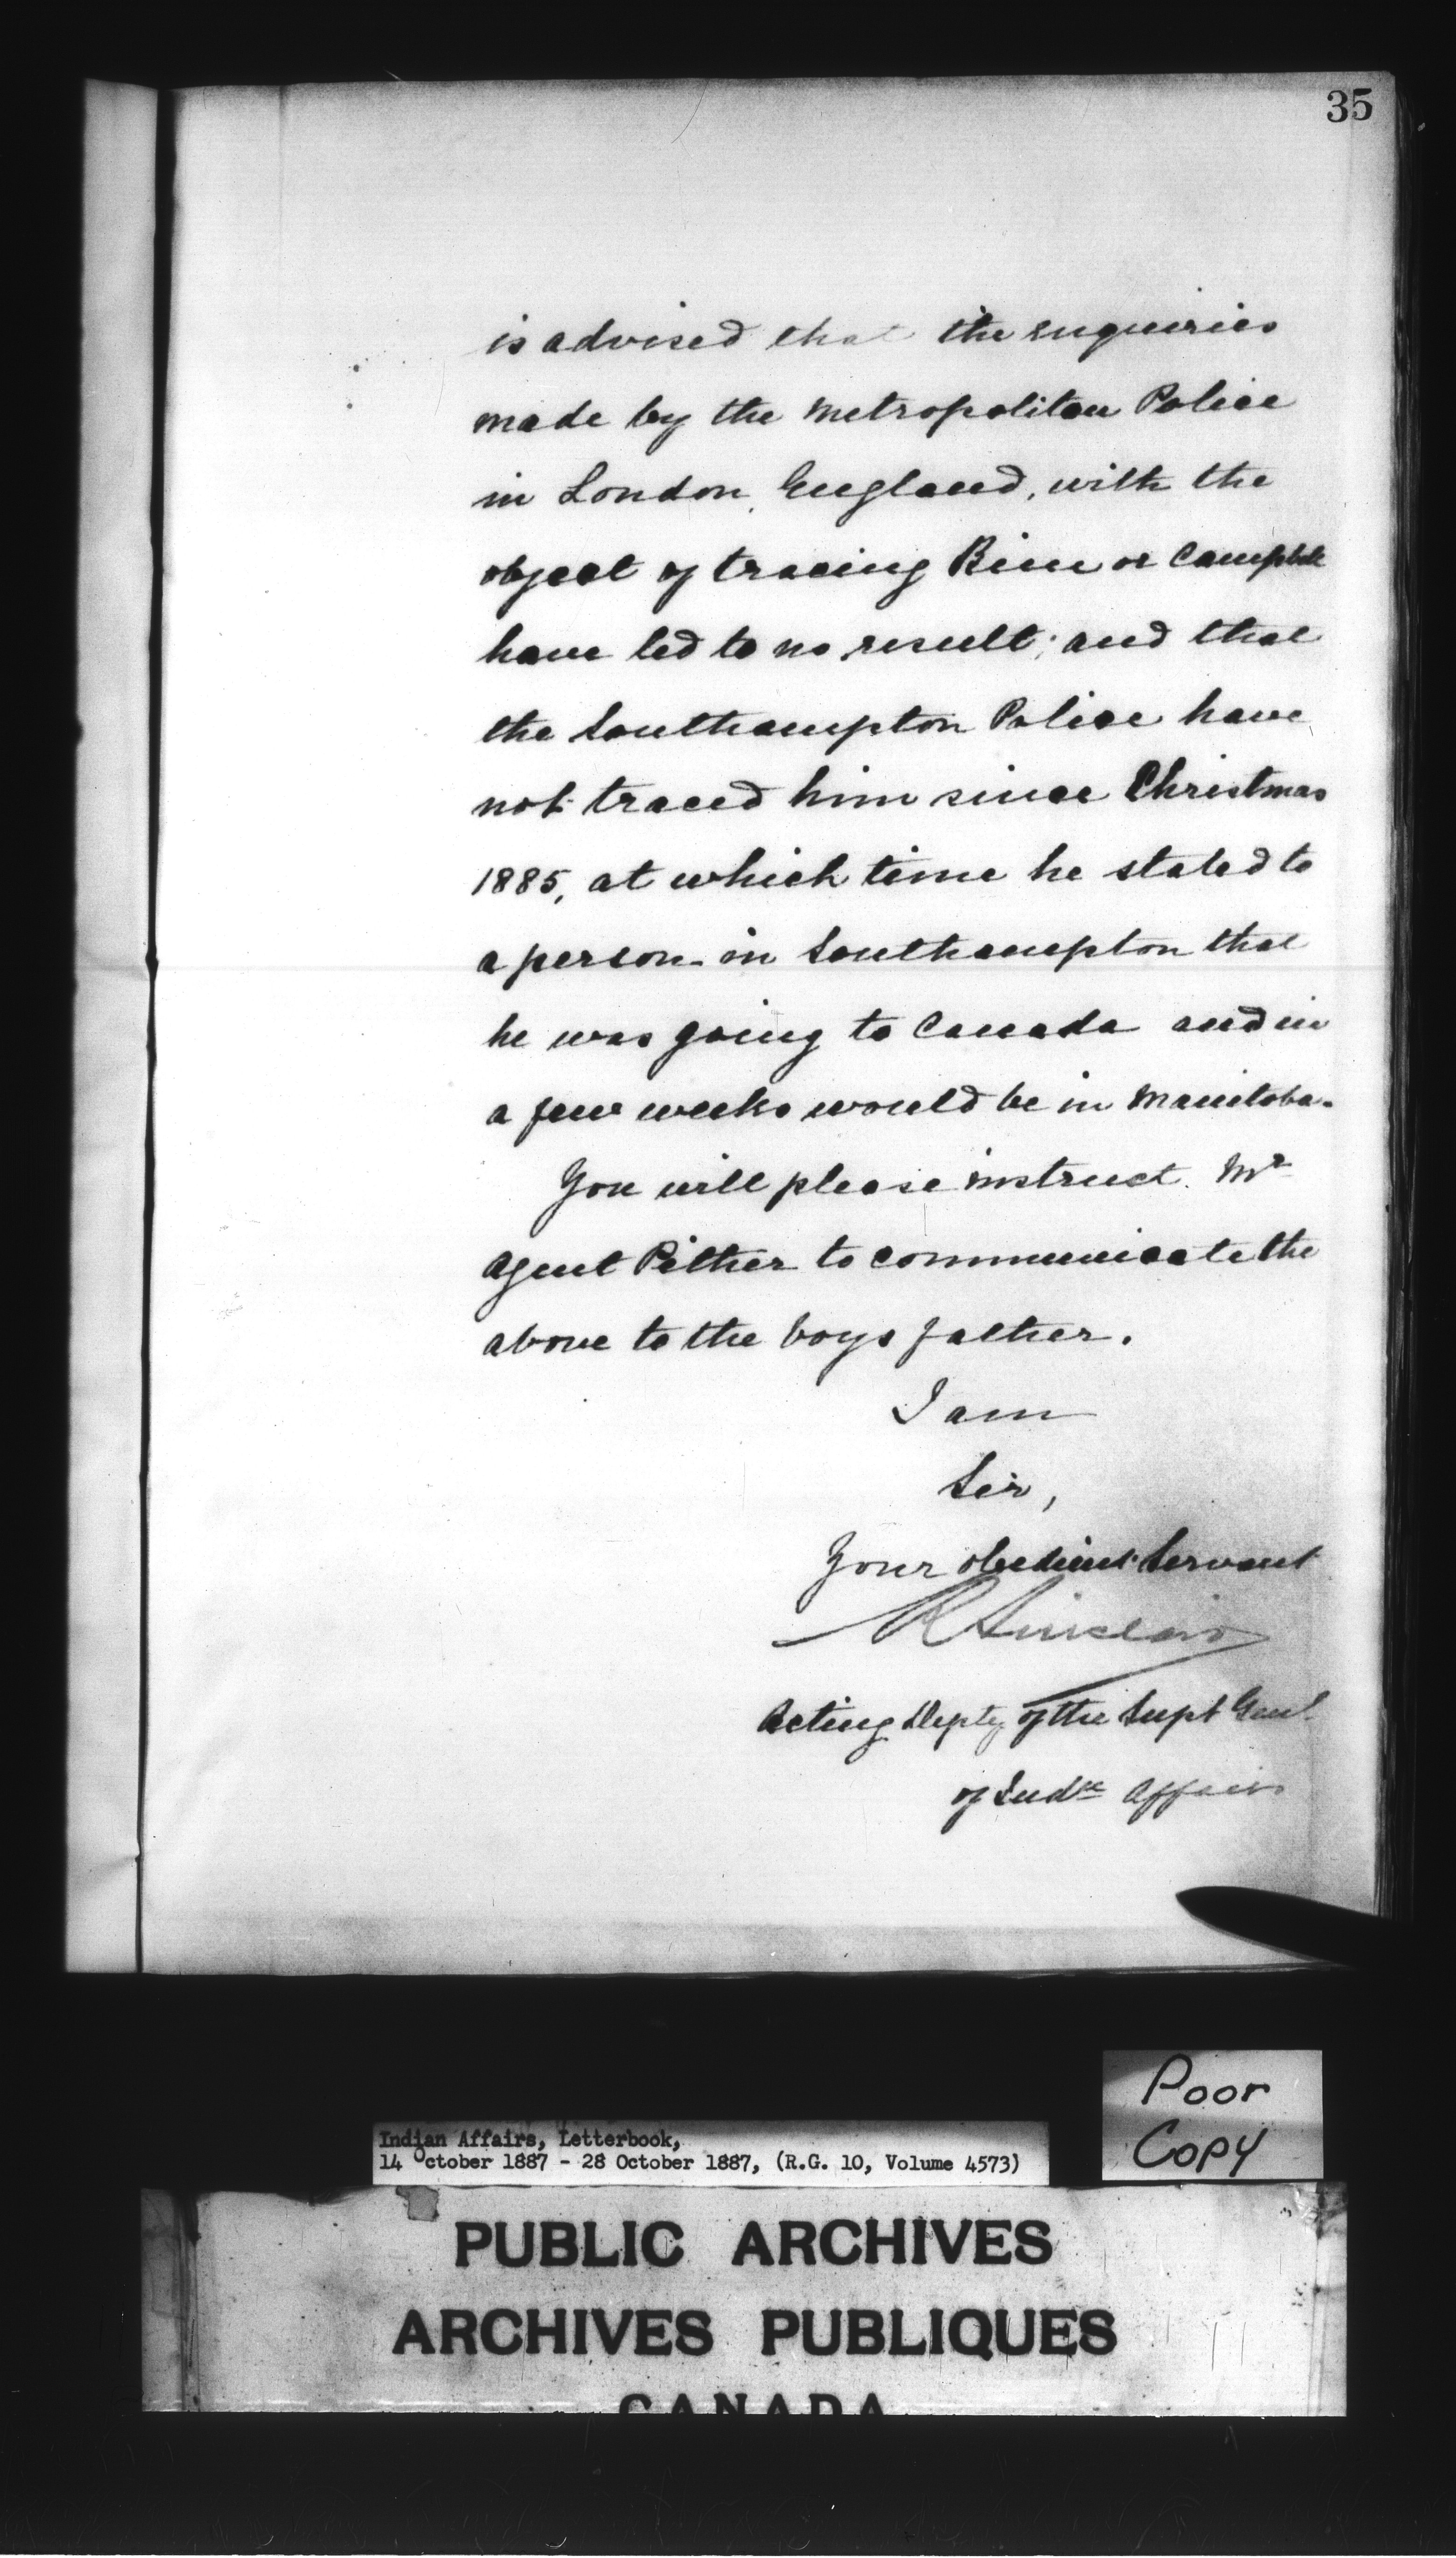 35
is advised that the enquiries
made by the Metropolitan Police
in London, England, with the
object of tracing or Campbell
have led to no result; and that
the Southampton Police have
not traced him since Christmas
1885, at which time he stated to
a person in Southampton that
he was going to Canada and in
a few weeks would be in Manitoba.
You will please instruct Mr
Agent Pither to communicate the
above to the boys father.
I am
Sir,
Your obedient Servant
R Sinclair
Acting Depty of the Supt Genl
of Indn Affairs
Poor
Copy
Indian Affairs, Letterbook,
14 October 1887 - 28 October 1887, (R.G. 10, Volume 4573)
PUBLIC ARCHIVES
ARCHIVES PUBLIQUES
CANADA